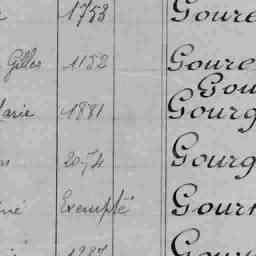 1753 Goure
Gilles 1152 Goure
Gou
Marie 1881 Gourg
2074 Gourg
Exempté Gour
1287 Gour